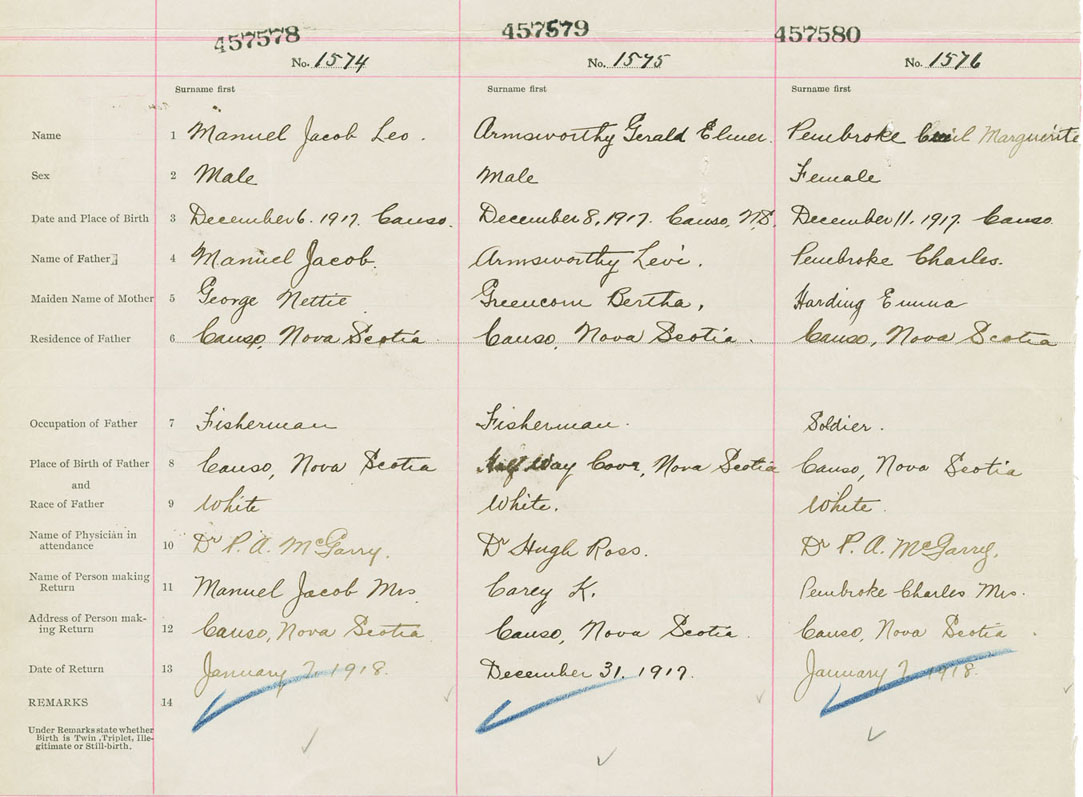 457578 457579 457580
No. 1574 No. 1575 No. 1576
Surname first Surname first Surname first
Name 1 Manuel Jacob Leo. Armsworthy Gerald Elmer. Pembroke Marguerite
Sex 2 Male Male Female
Date and Place of Birth 3 December 6. 1917. Canso. December 8, 1917. Canso, N.S. December 11. 1917. Canso.
Name of Father 4 Manuel Jacob. Armsworthy Levi. Pembroke Charles.
Maiden Name of Mother 5 George Nettie Greencorn Bertha, Harding Emma
Residence of Father 6 Canso, Nova Scotia Canso, Nova Scotia. Canso, Nova Scotia
Occupation of Father 7 Fisherman Fisherman. Soldier.
Place of Birth of Father 8 Canso, Nova Scotia Half Way Cove, Nova Scotia Canso, Nova Scotia
and
Race of Father 9 White White. White.
Name of Physician in
attendance 10 Dr P. A. McGarry. Dr Hugh Ross. Dr P. A. McGarry.
Name of Person making
Return 11 Manuel Jacob Mrs. Carey K. Pembroke Charles Mrs.
Address of Person mak-
ing Return 12 Canso, Nova Scotia Canso, Nova Scotia. Canso, Nova Scotia.
Date of Return 13 January 7. 1918. December 31, 1917. January 7. 1918.
REMARKS 14
Under Remarks state whether
Birth is Twin, Triplet, Ille-
gitimate or Still-birth.